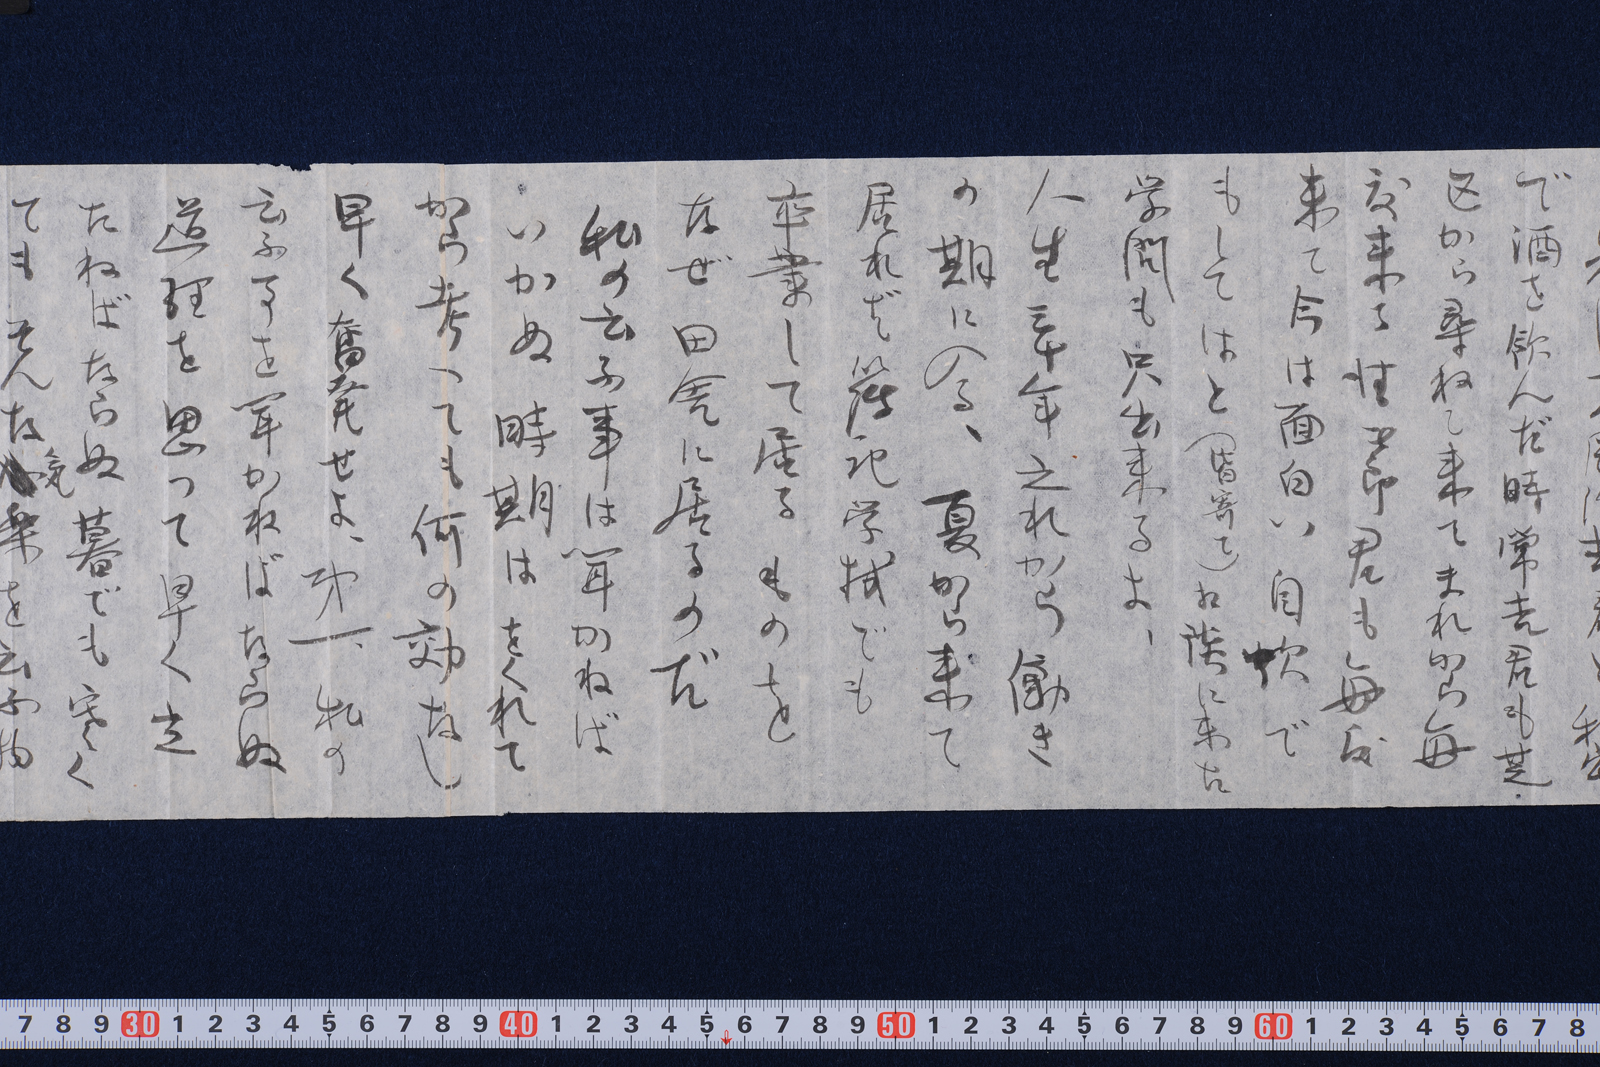 で酒を飲んだ時常吉君も芝
区から尋ねて来てまれから毎
度来る 性三郎君も毎度
来て今は面白い自炊で
もしてはと皆寄て相談に来た
学問も只出来るよ、
人生三十年之れから働き
の期に入る、夏から来て
居れば簿記学校でも
卒業して居るものを
なぜ田舎に居るのだ
私の云ふ事は聞かねば
いかぬ 時期はをくれて
から考へても何の効なし
早く奮発せよ、第一、私の
云ふ事を聞かねばならぬ
道理を思って早く立
たねばならぬ 暮でも寒く
ても そんな気楽を云ふ物
7 8 9 30 1 2 3 4 5 6 7 8 9 40 1 2 3 4 5 6 7 8 9 50 1 2 3 4 5 6 7 8 9 60 1 2 3 4 5 6 7 8